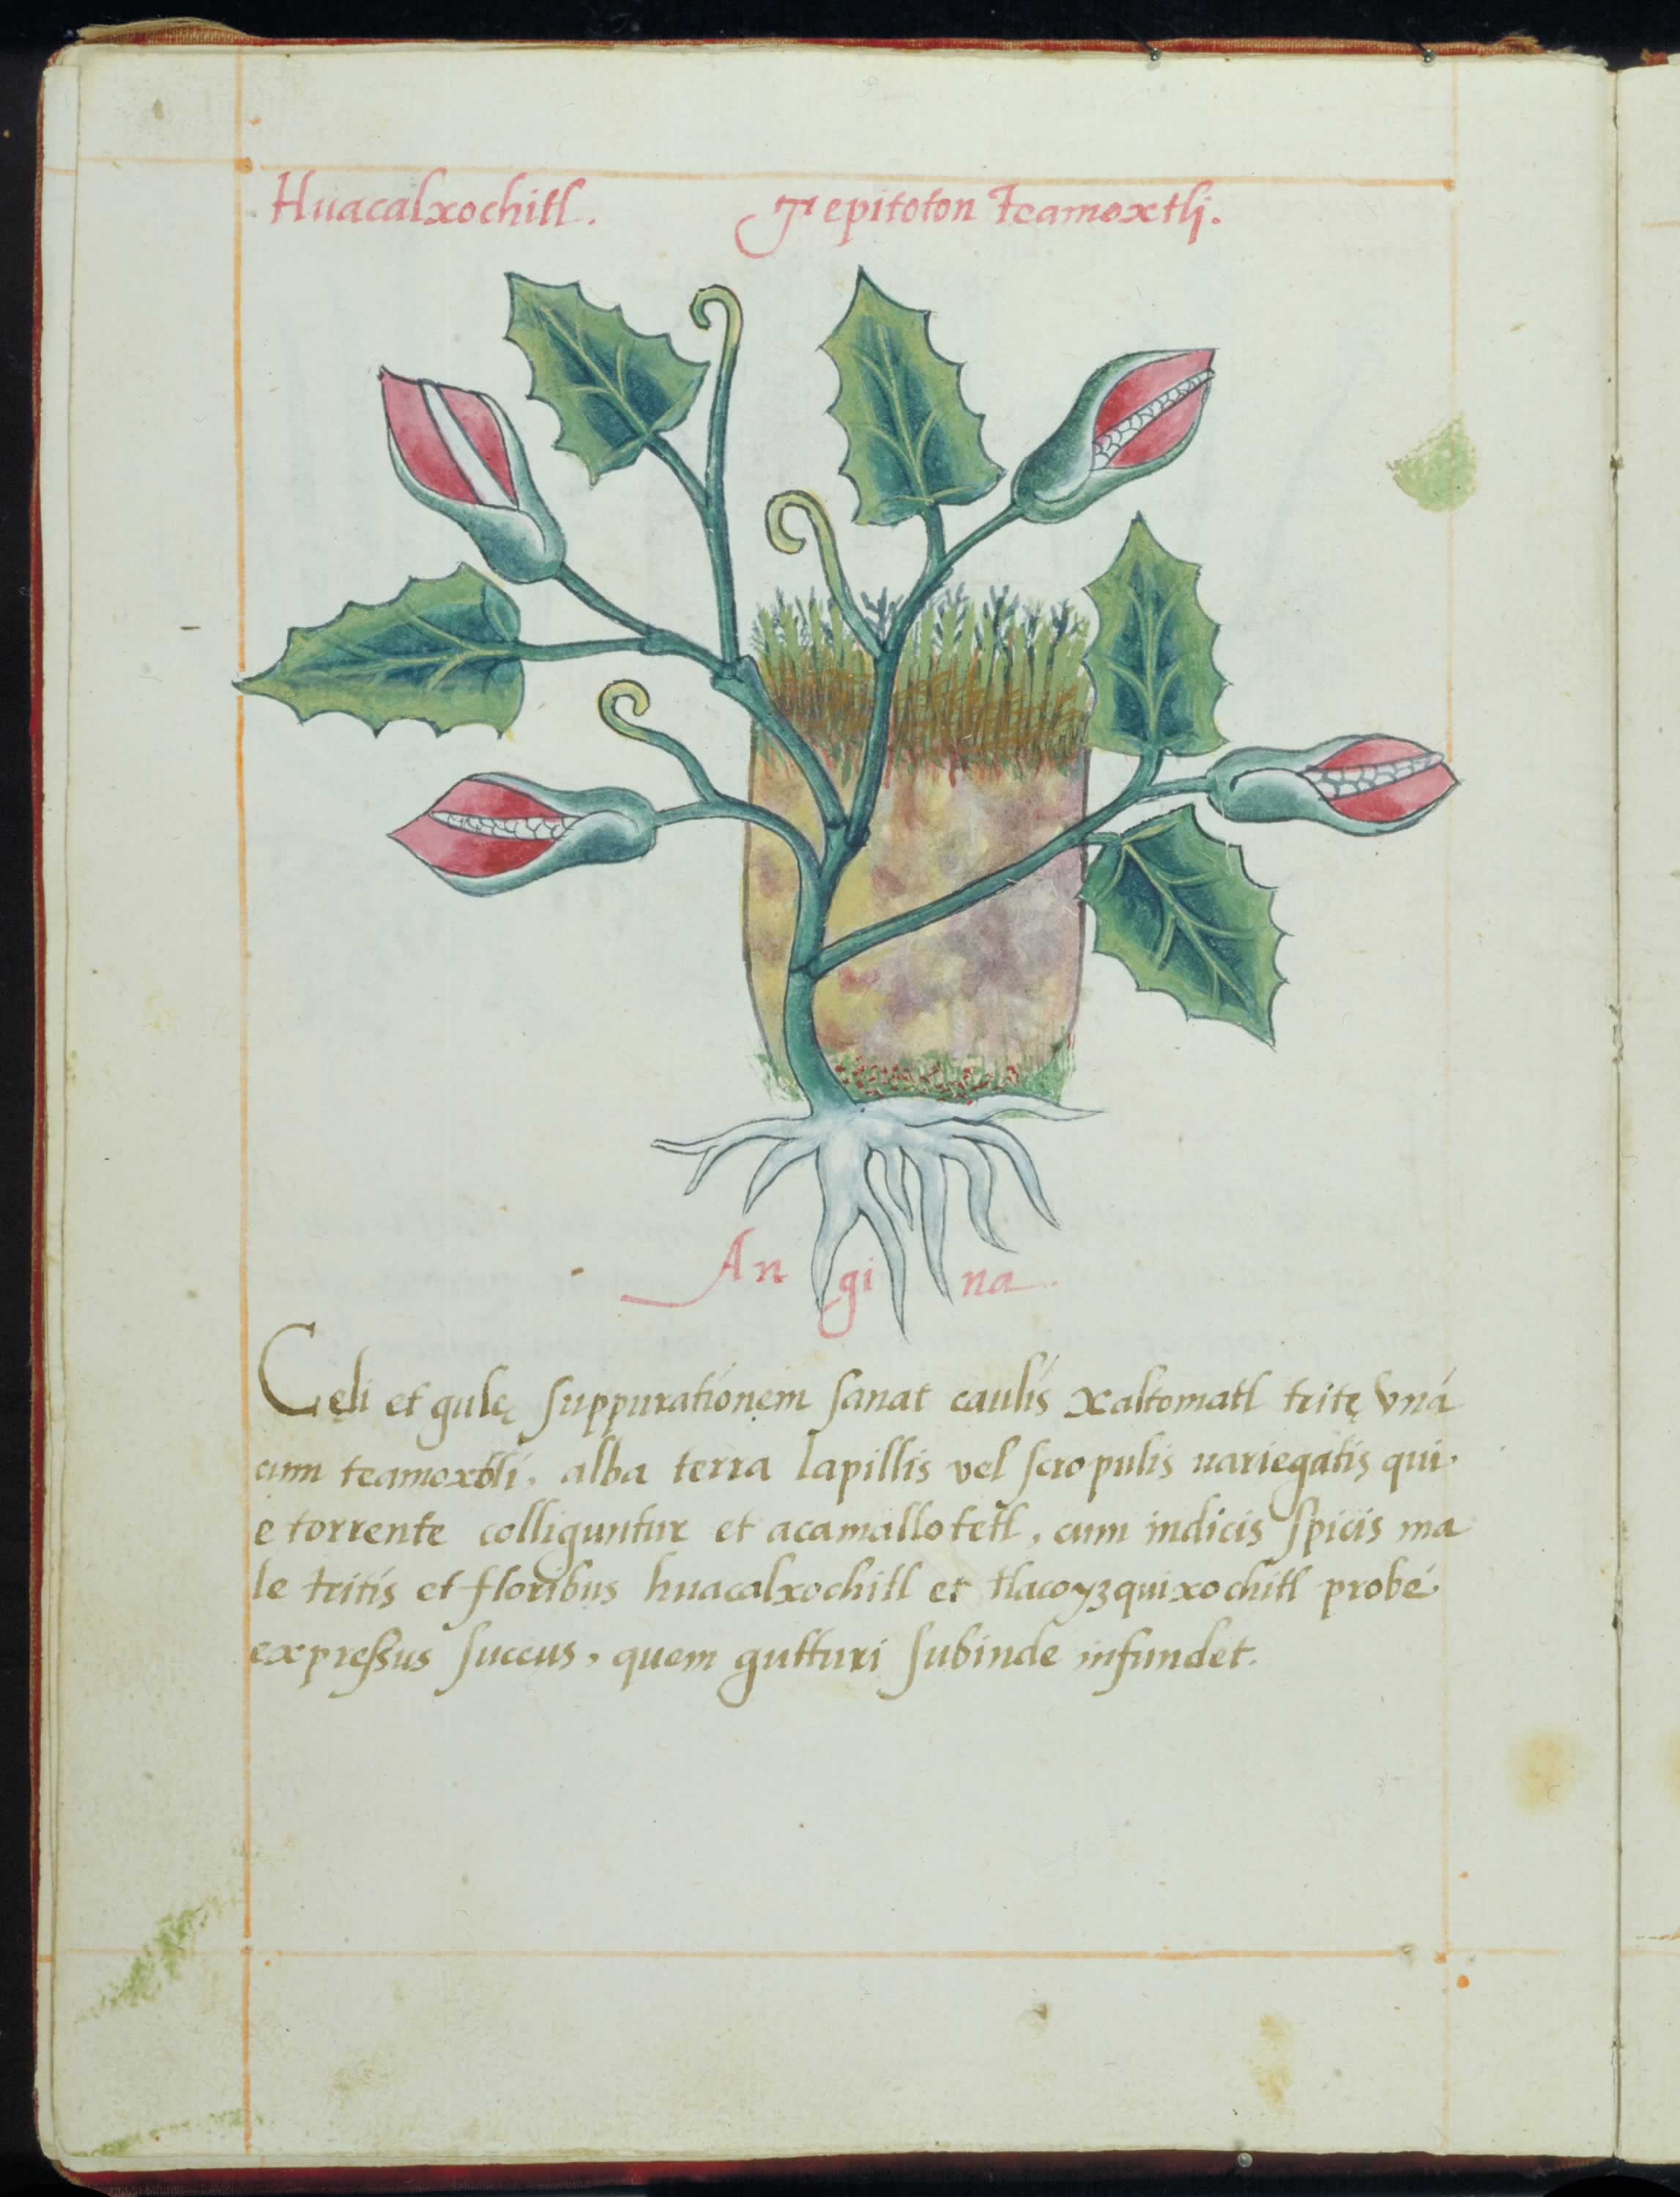 Huacalxochitl. Tepitoton teamoxtli.
Angina.
Cęli et gulę suppurationem sanat caulis xaltomatl tritę vná
cum teamoxtli, alba terra lapillis vel scropulis uariegatis qui
e torrente colliguntur et acamallotetl, cum indicis spicis ma
le tritis et floribus huacalxochitl et tlacoyzquixochitl probé
expressus succus, quem gutturi subinde infundet.